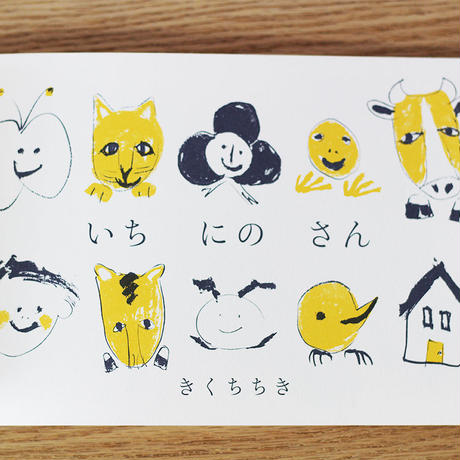 いち にの さん
きくちちき